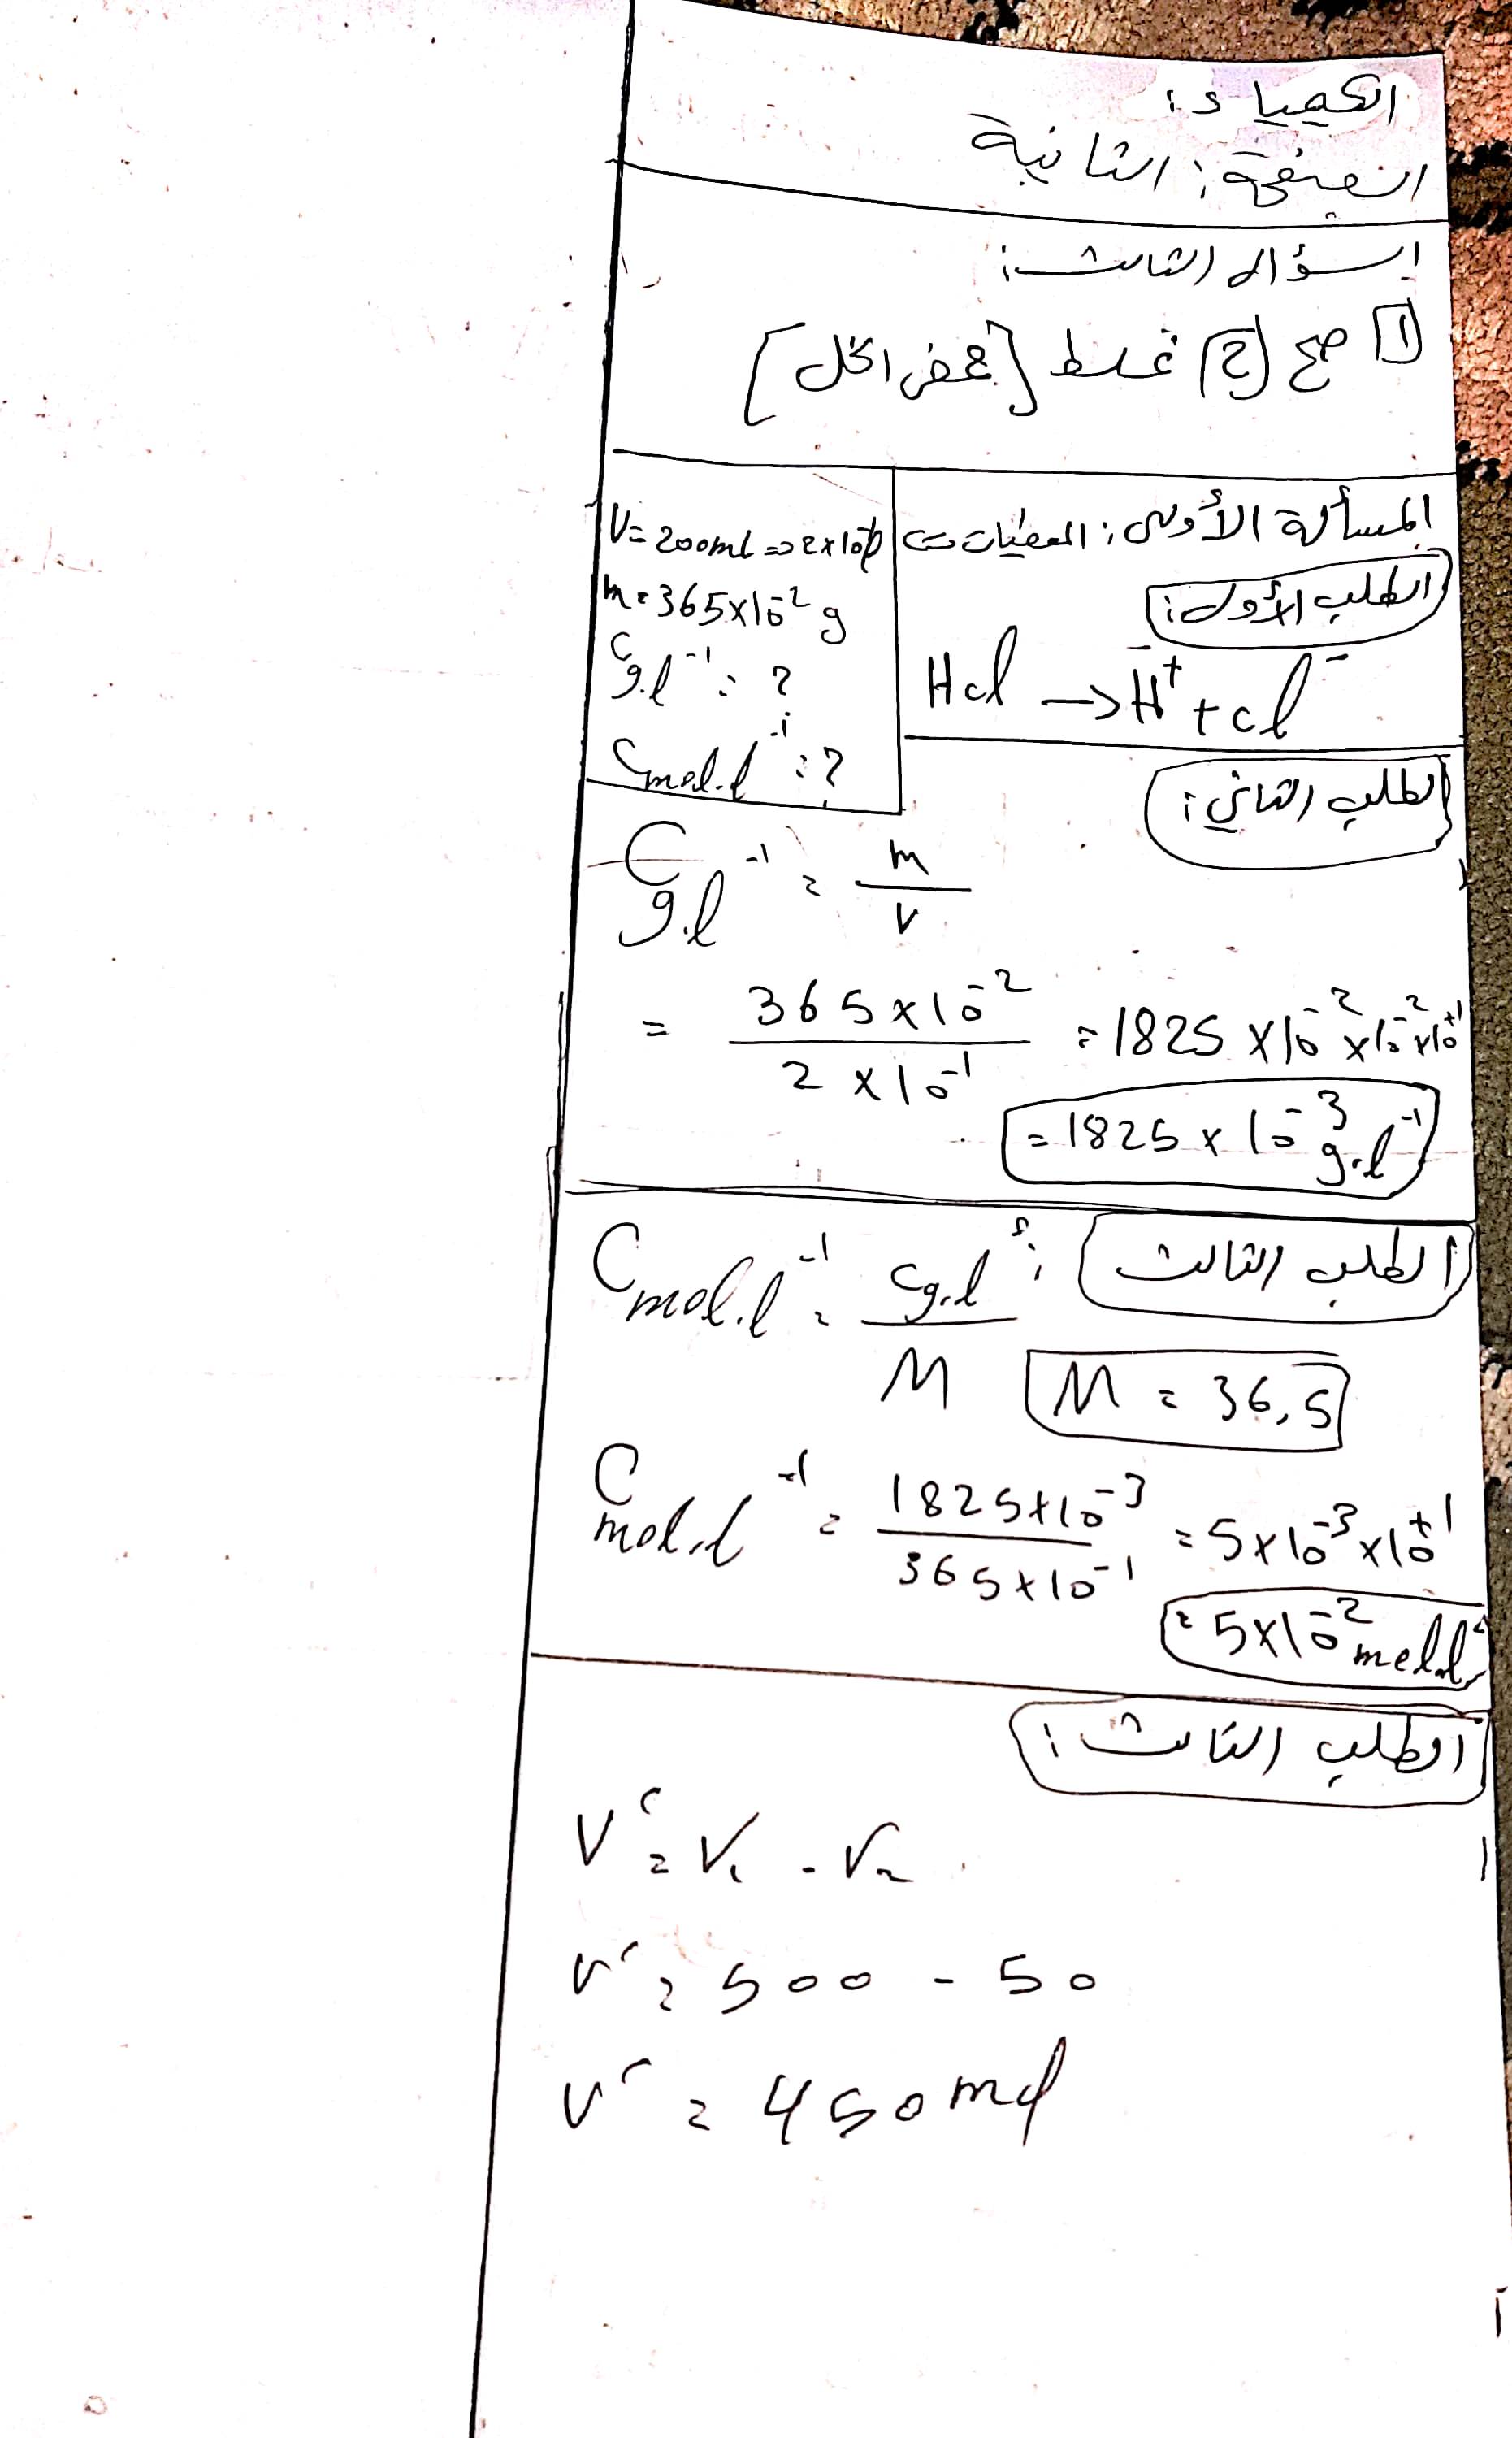 الكيمياء:
الصفحة: الثانية
السؤال الثالث:
1 صح 2) غلط [حمض الخل]
المسألة الأولى: المعطيات
V = 200ml => 2x10⁻¹ l
m = 365x10⁻² g
C g.l⁻¹ = ?
C mol.l⁻¹ = ?
الطلب الأول:
Hcl → H⁺ + cl⁻
الطلب الثاني:
C g.l⁻¹ = m / V
= 365x10⁻² / 2x10⁻¹ = 1825 x10⁻² x10⁻² x10⁺¹
= 1825 x 10⁻³ g.l⁻¹
الطلب الثالث:
C mol.l⁻¹ = C g.l⁻¹ / M
M = 36,5
C mol.l⁻¹ = 1825x10⁻³ / 365x10⁻¹ = 5x10⁻³ x10⁺¹
= 5x10⁻² mol.l⁻¹
الطلب الثالث:
V' = V₁ - V₂
V' = 500 - 50
V' = 450 ml